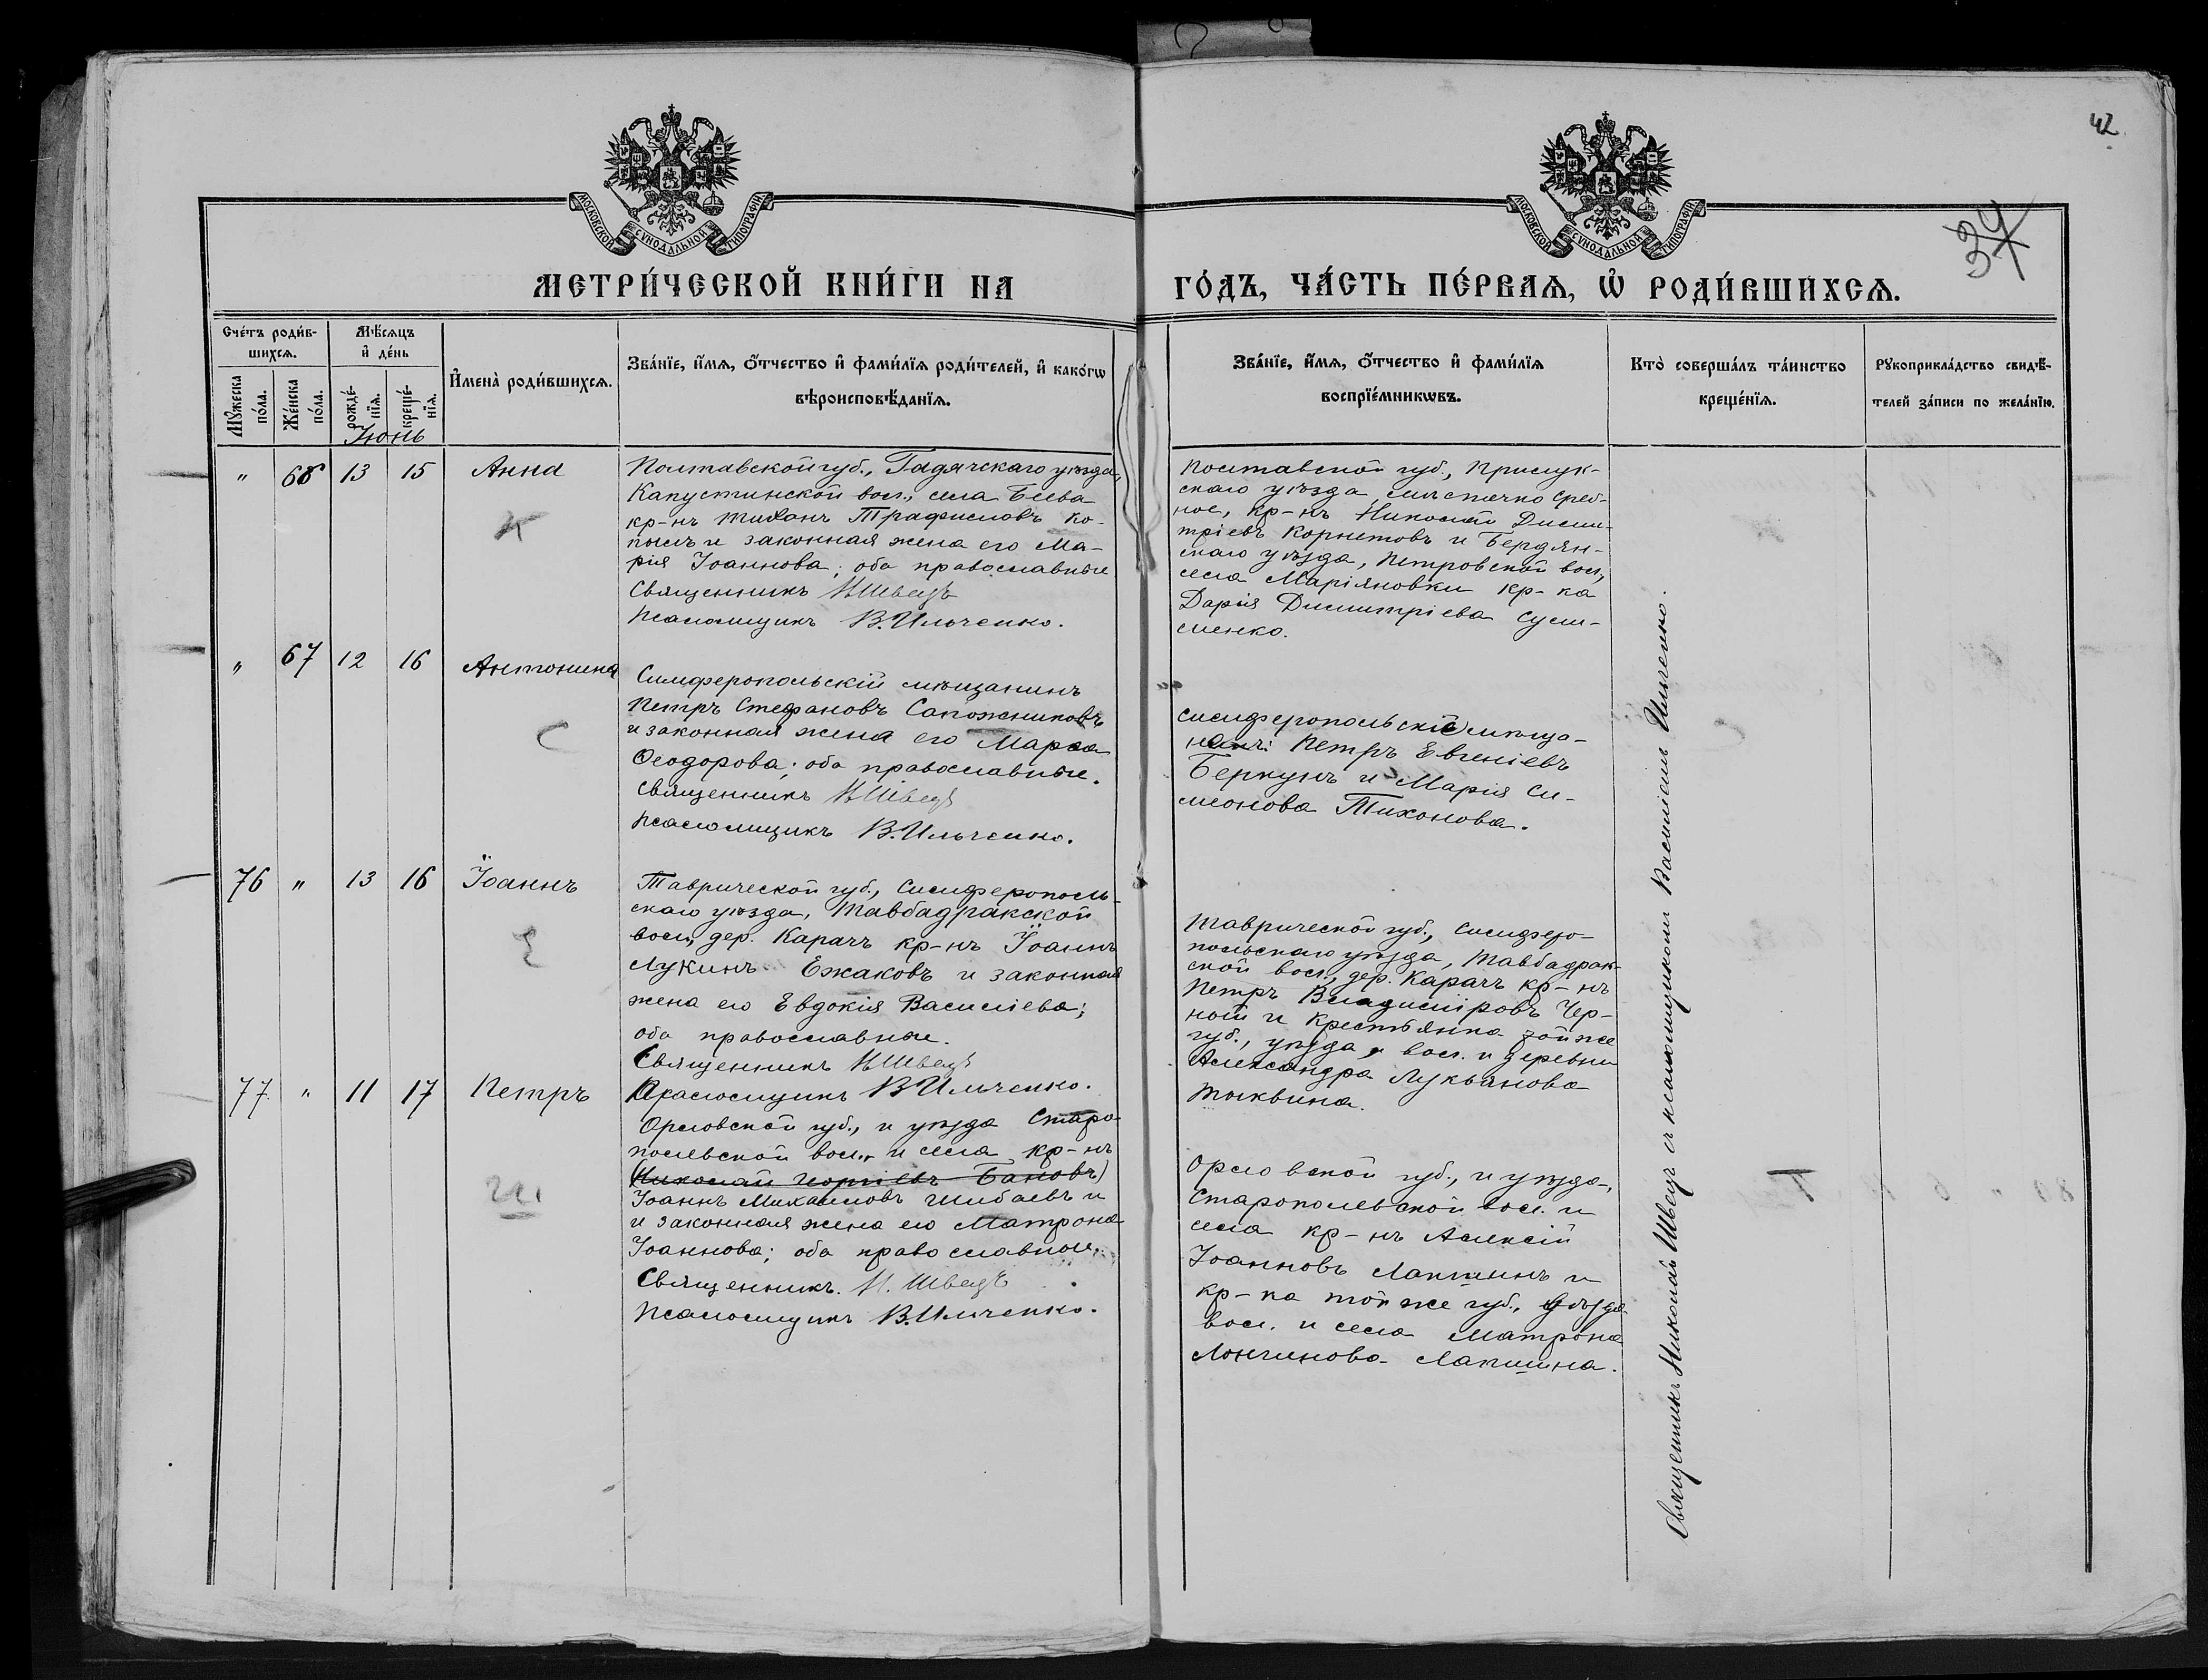 42
34
МОСКОВСКОЙ СѴНОДАЛЬНОЙ ТИПОГРАФІИ
МОСКОВСКОЙ СѴНОДАЛЬНОЙ ТИПОГРАФІИ
МЕТРИ́ЧЕСКОЙ КНИ́ГИ НА ГО́ДЪ, ЧА́СТЬ ПЕ́РВАѦ, Ѡ҆ РОДИ́ВШИХСѦ.
Сче́тъ роди́в-
шихсѧ.
Мꙋ́жеска по́ла.
Же́нска по́ла.
Мѣ́сѧцъ
и҆ де́нь
рожде́-
нїѧ.
креще́-
нїѧ.
И҆мена̀ роди́вшихсѧ.
Зва́нїе, и҆́мѧ, ѻ҆́тчество и҆ фами́лїѧ роди́телей, и҆ како́гѡ
вѣроисповѣ́данїѧ.
Зва́нїе, и҆́мѧ, ѻ҆́тчество и҆ фами́лїѧ
воспрїе́мникѡвъ.
Кто̀ соверша́лъ та́инство
креще́нїѧ.
Рꙋкоприкла́дство свидѣ́-
телей за́писи по жела́нїю.
Іюнь
" 66 13 15 Анна
Полтавской губ., Гадячскаго уѣзда,
Капустинской вол., села Беева
кр-нъ Тихонъ Трафиловъ Ко-
пылъ и законная жена его Ма-
рія Іоаннова; оба православные
Священникъ Н Швецъ
Псаломщикъ В. Ильченко.
Полтавской губ., Прилук-
скаго уѣзда мѣстечко Среб-
ное, кр-нъ Николай Дими-
тріевъ Корнетовъ и Бердян-
скаго уѣзда, Петровской вол.,
села Маріяновки кр-ка
Дарія Димитріева Сули-
менко.
" 67 12 16 Антонина
Симферопольскій мѣщанинъ
Петръ Стефановъ Сапожниковъ
и законная жена его Марѳа
Ѳеодорова; оба православные.
Священникъ Н Швецъ
Псаломщикъ В. Ильченко.
Симферопольскіе мѣща-
не: Петръ Евгеніевъ
Беркунъ и Марія Си-
меонова Тихонова.
76 " 13 16 Іоаннъ
Таврической губ., Симферополь-
скаго уѣзда, Тавбадракской
вол., дер. Карачъ кр-нъ Іоаннъ
Лукинъ Ежаковъ и законная
жена его Евдокія Василіева;
оба православные.
Священникъ Н Швецъ
Псаломщикъ В Ильченко.
Таврической губ., Симферо-
польскаго уѣзда, Тавбадрак-
ской вол., дер. Карачъ кр-нъ
Петръ Владиміровъ Чер-
ный и крестьянка той же
губ., уѣзда, вол. и деревни
Александра Лукьянова
Тыквина.
77 " 11 17 Петръ
Орловской губ., и уѣзда Старо-
полевской вол., и села кр-нъ
Іоаннъ Михаиловъ Шибаевъ и
и законная жена его Матрона
Іоаннова; оба православные.
Священникъ. Н. Швецъ
Псаломщикъ В. Ильченко.
Орловской губ., и уѣзда,
Старополевской вол. и
села кр-нъ Алексій
Іоанновъ Лапшинъ и
кр-ка той же губ., уѣзда
вол. и села Матрона
Лонгинова Лапшина.
Священникъ Николай Швецъ съ псаломщикомъ Василіемъ Ильченко.